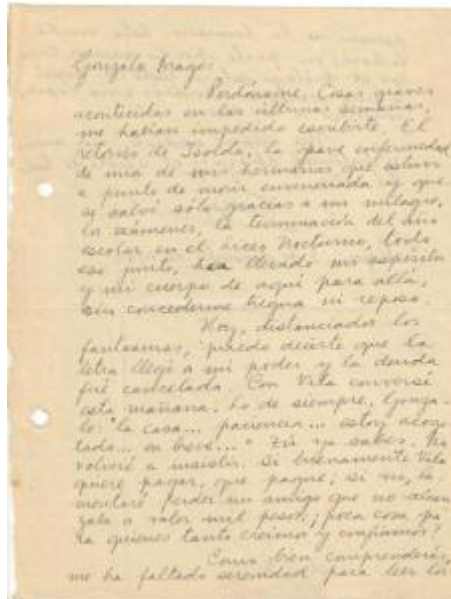 Gonzalo Drago:
Perdóname. Cosas graves
acontecidas en las últimas semanas,
me habían impedido escribirte. El
retorno de Isolda, la grave enfermedad
de una de mis hermanas que estuvo
a punto de morir envenenada y que
se salvó sólo gracias a un milagro,
los exámenes, la terminación del año
escolar en el Liceo Nocturno, todo
eso junto, ha llevado mi espíritu
y mi cuerpo de aquí para allá,
sin concederme tregua ni reposo.
Hoy, distanciados los
fantasmas, puedo decirte que la
letra llegó a mi poder y la deuda
fué cancelada. Con Vila conversé
esta mañana. Lo de siempre, Gonza-
lo: "la casa... paciencia... estoy aco
tado... en breve..." Tú ya sabes. No
volveré a insistir. Si buenamente Vila
quiere pagar, que pague; si no, la-
mentaré perder un amigo que no alcan
zaba a valer mil pesos; ¡poca cosa pa
ra quienes tanto creímos y confiamos!
Como bien comprenderás,
me ha faltado serenidad para leer los